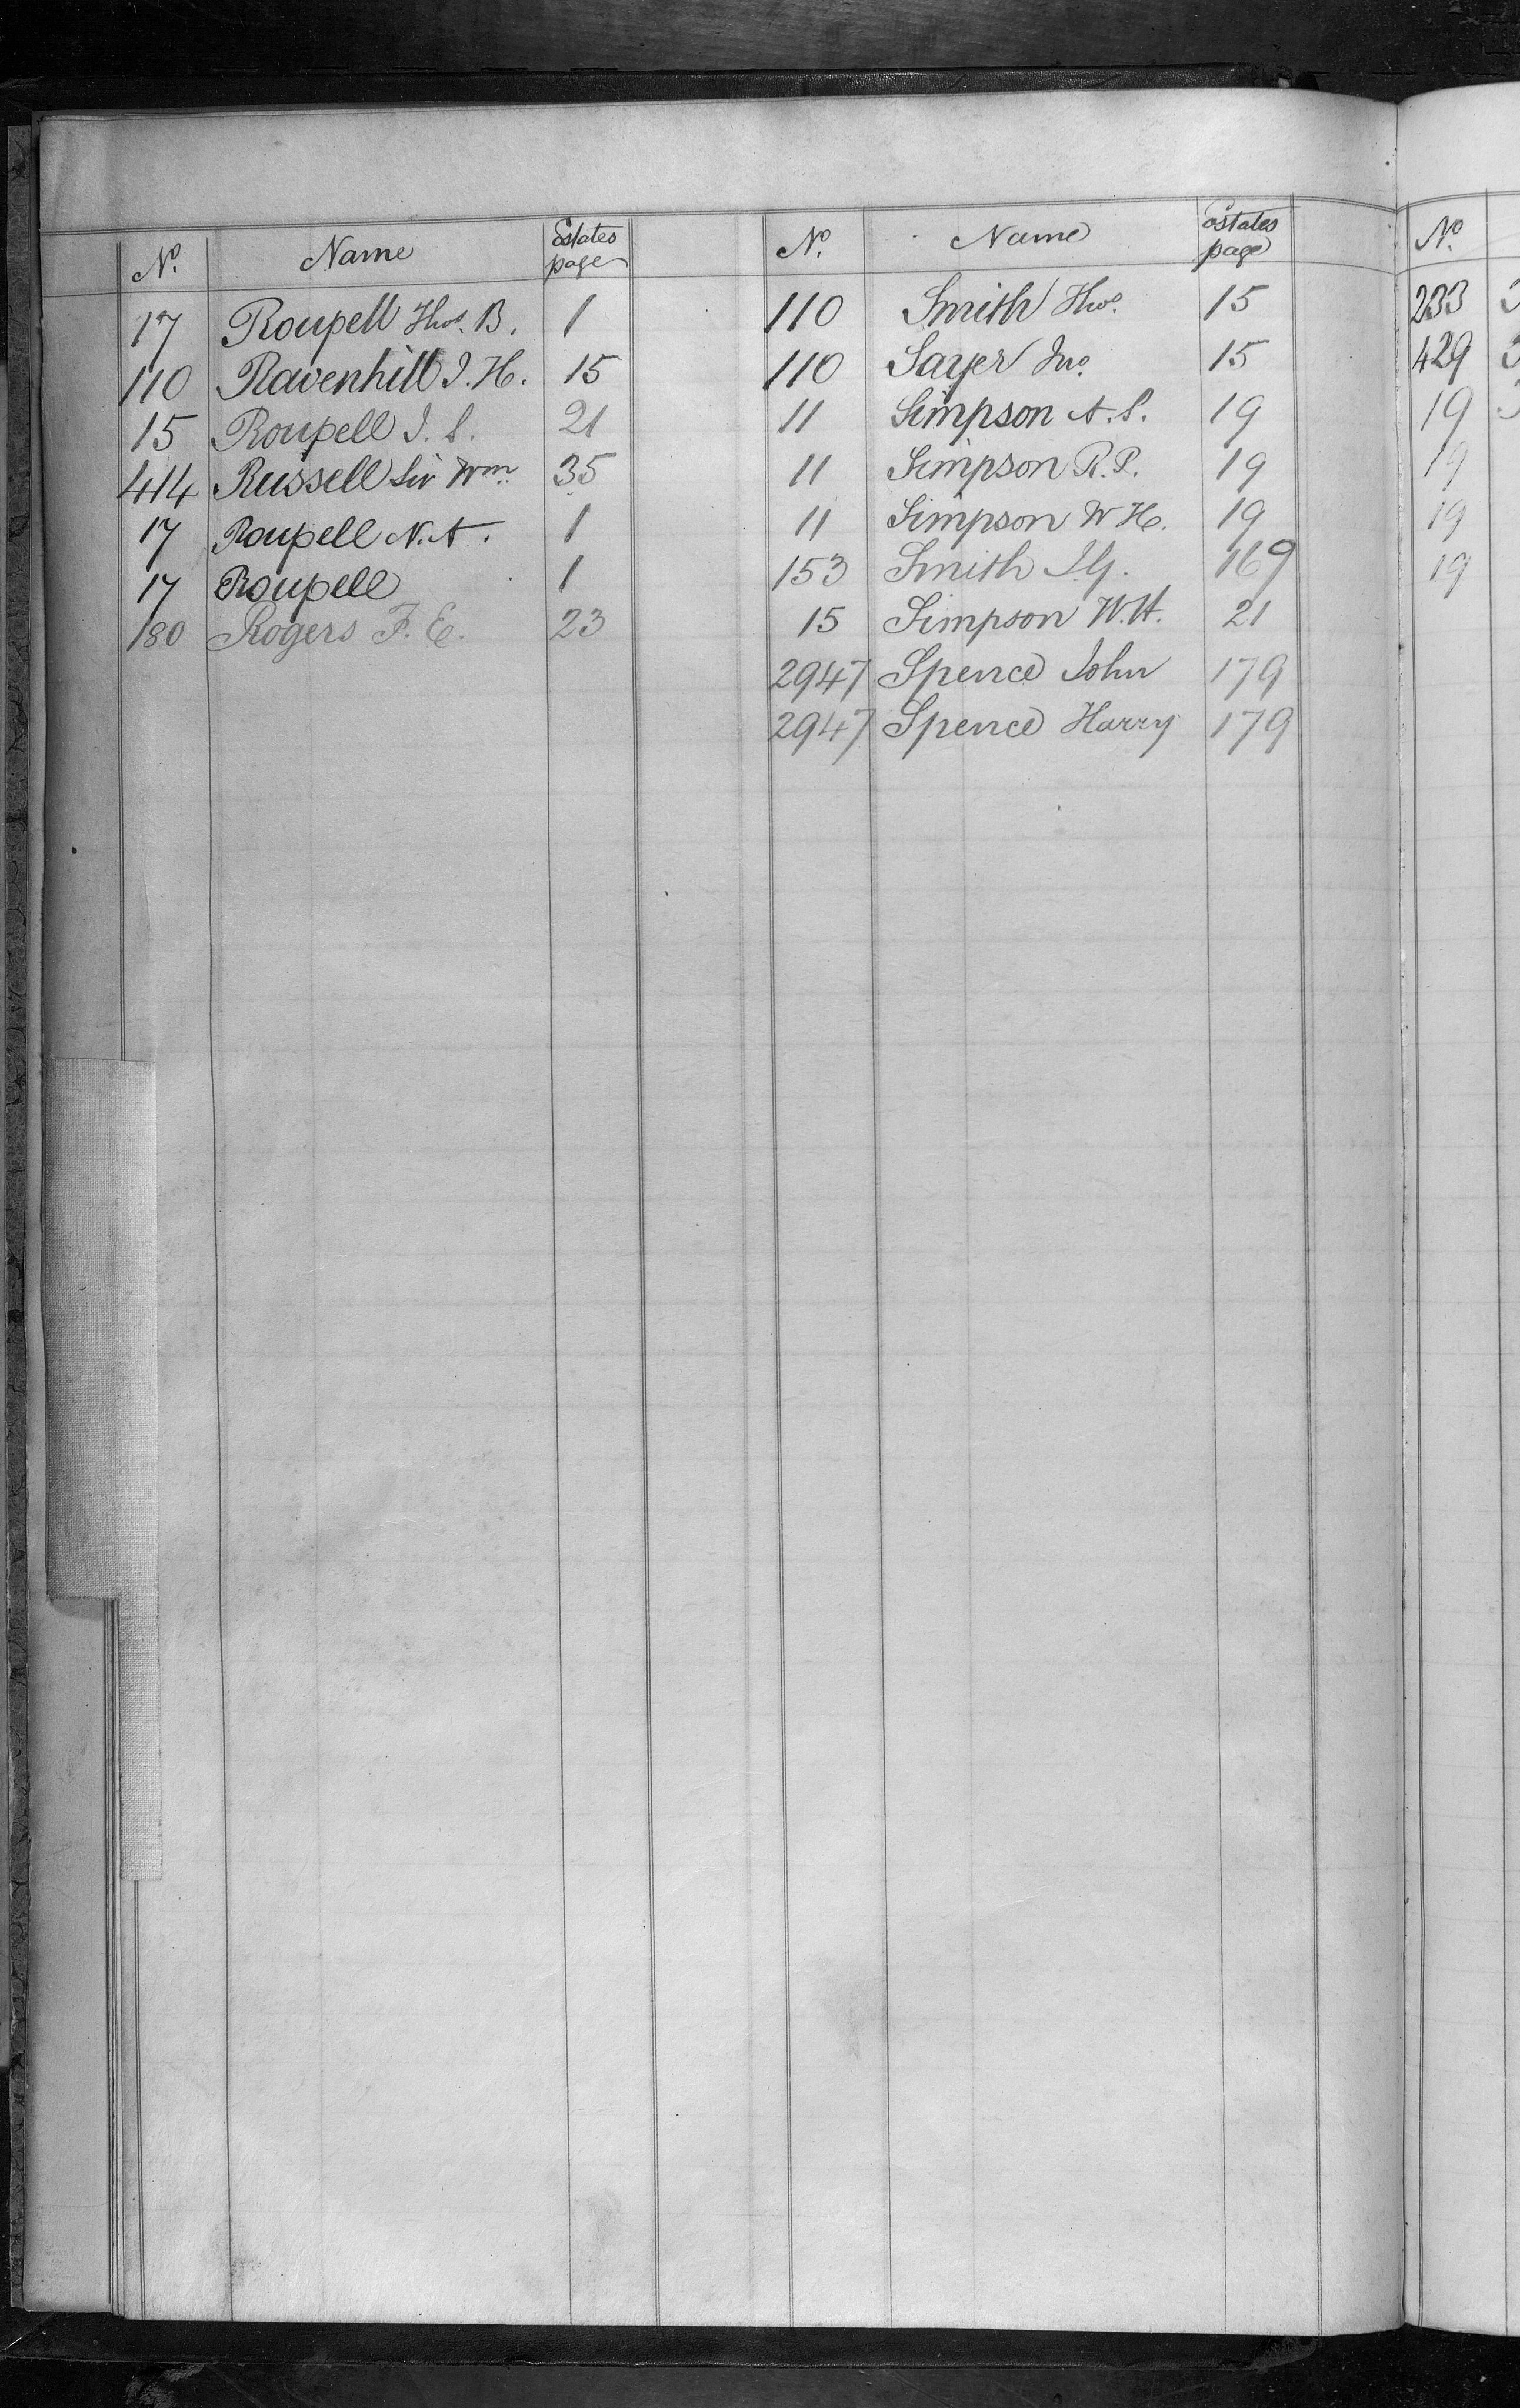 No. Name Estates page
17 Roupell Thos. B. 1
110 Ravenhill J. H. 15
15 Roupell J. S. 21
414 Russell Sir Wm. 35
17 Roupell N. A. 1
17 Roupell 1
180 Rogers F. E. 23
No. Name Estates page
110 Smith Thos. 15
110 Sayer Jno. 15
11 Simpson A. S. 19
11 Simpson R. P. 19
11 Simpson W H. 19
153 Smith J.G. 169
15 Simpson W. H. 21
2947 Spence John 179
2947 Spence Harry 179
No.
233
429
19
19
19
19